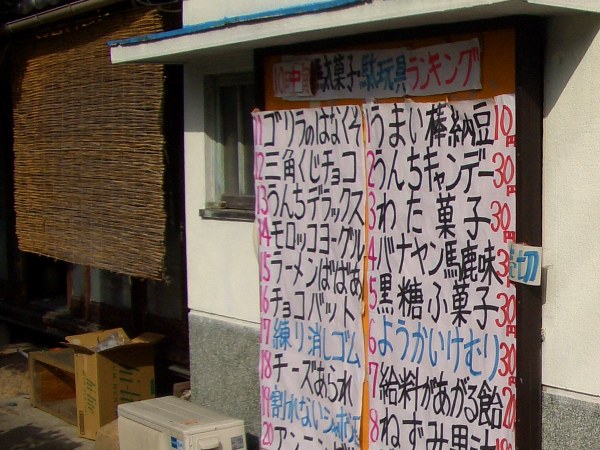 10中 駄菓子・駄玩具ランキング
1 うまい棒納豆 10円
2 うんちキャンデー 30円
3 わた菓子 30円
4 バナヤン馬鹿味 3
売切
5 黒糖ふ菓子 30円
6 ようかいけむり 30円
7 給料があがる飴 20
8 ねずみ果汁
11 ゴリラのはなくそ
12 三角くじチョコ
13 うんちデラックス
14 モロッコヨーグル
15 ラーメンばばあ
16 チョコバット
17 練り消しゴム
18 チーズあられ
19 割れないシャボン
20